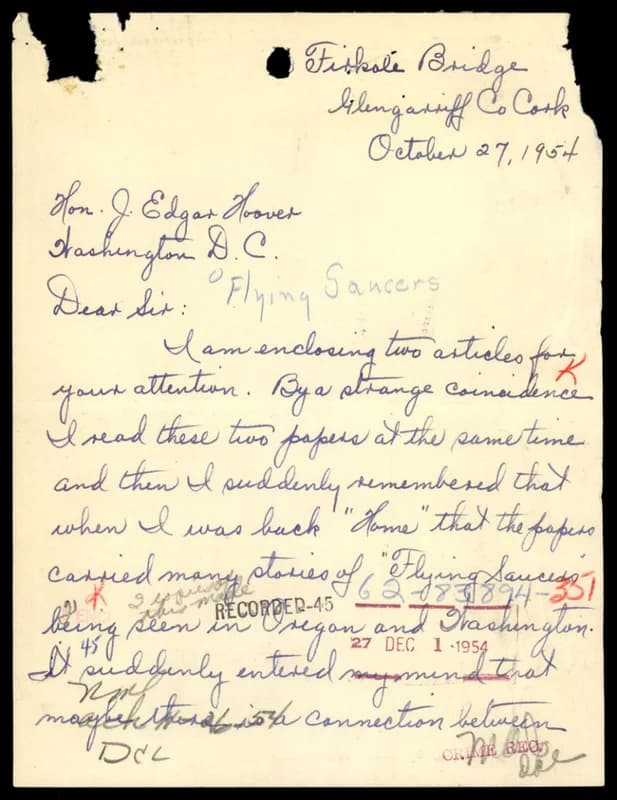 Firkole Bridge
Glengarriff Co Cork
October 27, 1954
Hon. J. Edgar Hoover
Washington D. C.
Flying Saucers
Dear Sir:
I am enclosing two articles for
your attention. By a strange coincidence
K
I read these two papers at the same time
and then I suddenly remembered that
when I was back "Home" that the papers
carried many stories of "Flying Saucers"
62-83894-351
K
RECORDED-45
being seen in Oregon and Washington.
45
27 DEC 1 1954
It suddenly entered my mind that
maybe there is a connection between
DCL
CRIME REC.